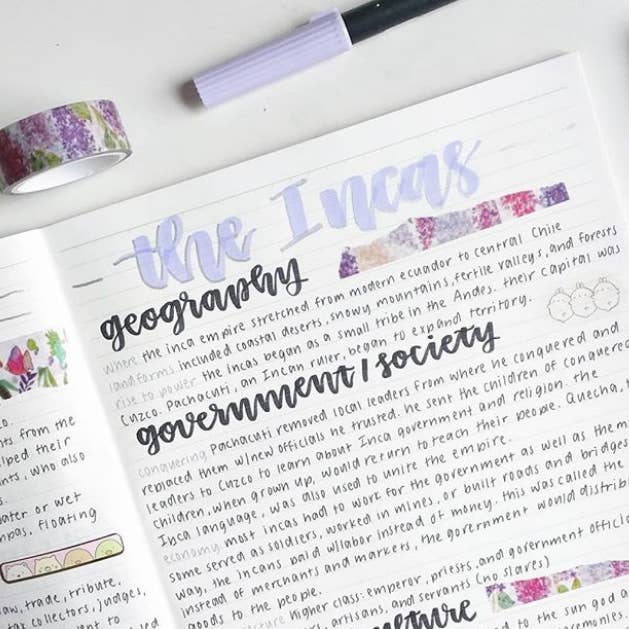 the Incas
geography
where the inca empire stretched from modern ecuador to central Chile
landforms included coastal deserts, snowy mountains, fertile valleys, and forests
rise to power the incas began as a small tribe in the Andes. their capital was
Cuzco. Pachacuti, an Incan ruler, began to expand territory.
government/society
conquering Pachacuti removed local leaders from where he conquered and
replaced them w/new officials he trusted. he sent the children of conquered
leaders to Cuzco to learn about Inca government and religion. the
children, when grown up, would return to teach their people. Quecha,
Inca language, was also used to unite the empire.
economy most incas had to work for the government as well as them
some served as soldiers, worked in mines, or built roads and bridges
way, the incans paid w/labor instead of money. this was called the
instead of merchants and markets, the government would distrib
goods to the people.
Higher class: emperor, priests, and government offici
artisans, and servants (no slaves)
to the sun god a
co.
nts from the
lped their
nts, who also
s.
ater or wet
mpas, floating
aw, trade, tribute,
tax collectors, judges,
ment to